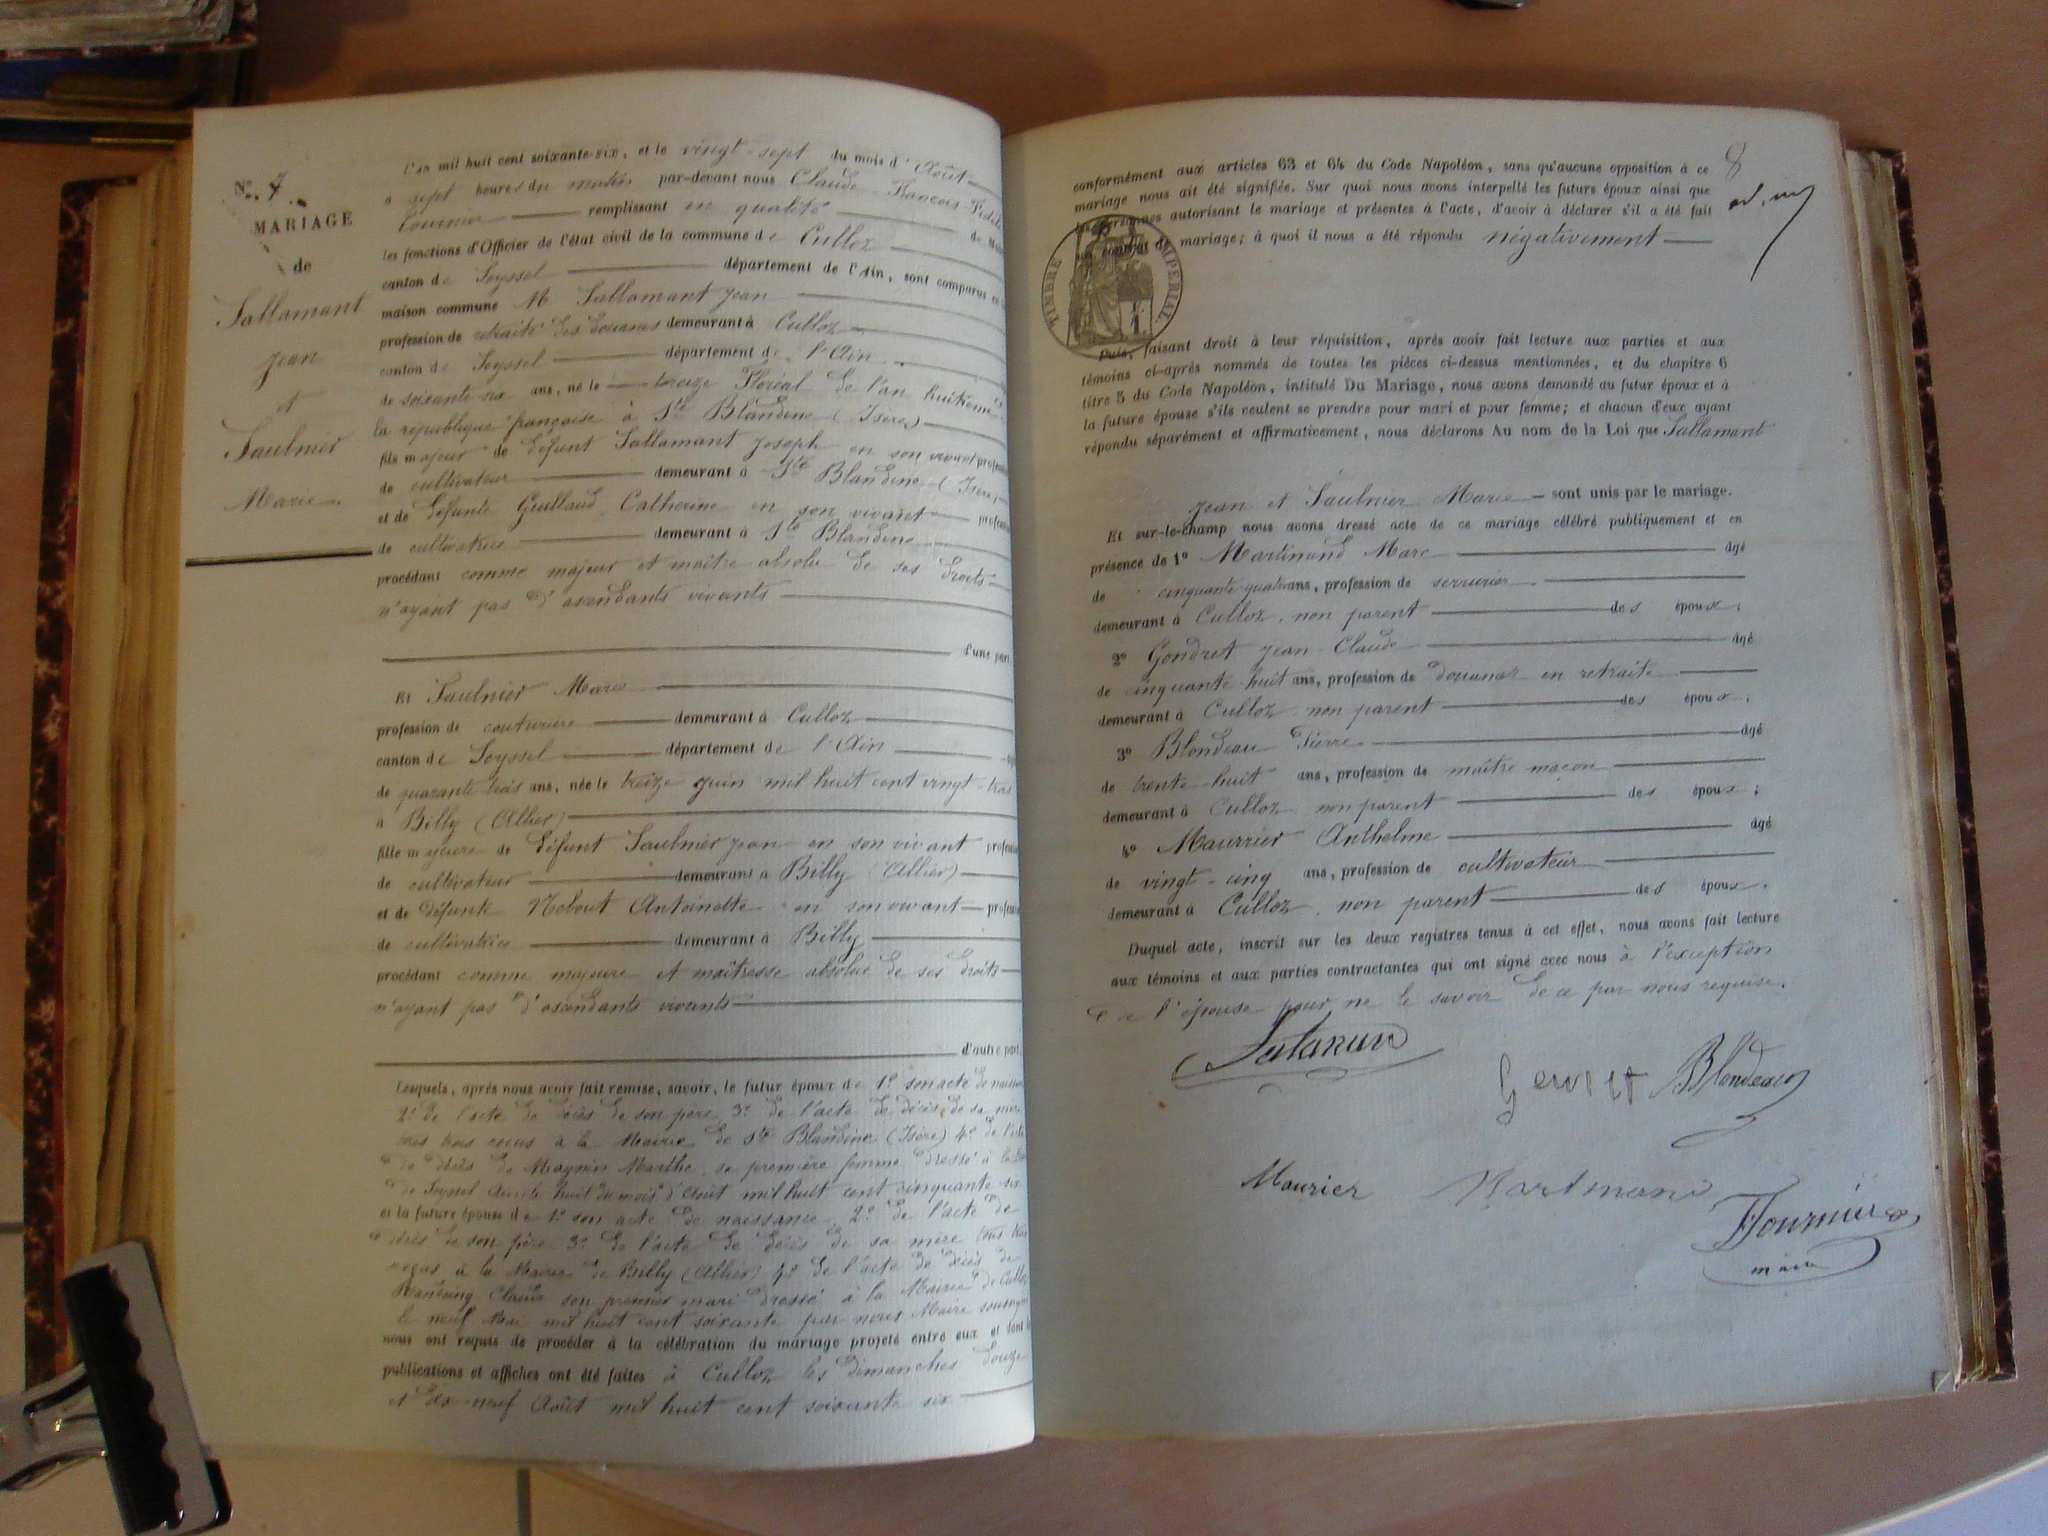 N.º 7
MARIAGE
de
Sallamant
Jean
et
Saulnier
Marie
L'an mil huit cent soixante-six, et le vingt-sept du mois d'Août
a sept heures du matin par-devant nous Claude François
Fournier remplissant en qualité de
les fonctions d'Officier de l'état civil de la commune de Culloz
canton de Seyssel département de l'Ain, sont comparus en
maison commune M Sallamant Jean
profession de retraité des douanes demeurant à Culloz
canton de Seyssel département de l'Ain
de soixante six ans, né le treize Floréal de l'an huitième
la république française à Ste Blandine (Isère)
fils majeur de défunt Sallamant Joseph en son vivant
de cultivateur demeurant à Ste Blandine (Isère)
et de défunte Guillaud Catherine en son vivant
de cultivatrice demeurant à Ste Blandine
procédant comme majeur et maître absolu de ses droits
n'ayant pas d'ascendants vivants
d'une part.
Et Saulnier Marie
profession de couturière demeurant à Culloz
canton de Seyssel département de l'Ain
de quarante trois ans, née le treize juin mil huit cent vingt-trois
à Billy (Allier)
fille majeure de défunt Saulnier Jean en son vivant
de cultivateur demeurant à Billy (Allier)
et de défunte Nebout Antoinette en son vivant
de cultivatrice demeurant à Billy
procédant comme majeure et maîtresse absolue de ses droits
n'ayant pas d'ascendants vivants
d'autre part.
Lesquels, après nous avoir fait remise, savoir, le futur époux de 1º son acte de
2º de l'acte de décès de son père 3º de l'acte de décès de sa mère
tous trois reçus à la Mairie de Ste Blandine (Isère) 4º de l'acte
de décès de Marthe, sa première femme dressé à la
de Seyssel huit du mois d'Août mil huit cent cinquante six
et la future épouse de 1º son acte de naissance 2º de l'acte de
décès de son père 3º de l'acte de décès de sa mère tous trois
reçus à la Mairie de Billy (Allier) 4º de l'acte de décès de
Claude son premier mari dressé à la Mairie de Culloz
le neuf Mai mil huit cent soixante par nous Maire
nous ont requis de procéder à la célébration du mariage projeté entre eux et dont
publications et affiches ont été faites à Culloz les dimanches douze
et dix-neuf Août mil huit cent soixante six
8
conformément aux articles 63 et 64 du Code Napoléon, sans qu'aucune opposition à ce
mariage nous ait été signifiée. Sur quoi nous avons interpellé les futurs époux ainsi que
les personnes autorisant le mariage et présentes à l'acte, d'avoir à déclarer s'il a été fait
un contrat de mariage; à quoi il nous a été répondu négativement
TIMBRE IMPERIAL
1
Puis, faisant droit à leur réquisition, après avoir fait lecture aux parties et aux
témoins ci-après nommés de toutes les pièces ci-dessus mentionnées, et du chapitre 6
titre 5 du Code Napoléon, intitulé Du Mariage, nous avons demandé au futur époux et à
la future épouse s'ils veulent se prendre pour mari et pour femme; et chacun d'eux ayant
répondu séparément et affirmativement, nous déclarons Au nom de la Loi que Sallamant
Jean et Saulnier Marie sont unis par le mariage.
Et sur-le-champ nous avons dressé acte de ce mariage célébré publiquement et en
présence de 1º Martinand Marc âgé
de cinquante quatre ans, profession de serrurier
demeurant à Culloz, non parent des époux;
2º Gondret Jean-Claude âgé
de cinquante huit ans, profession de douanier en retraite
demeurant à Culloz non parent des époux;
3º Blondeau Pierre âgé
de trente huit ans, profession de maître maçon
demeurant à Culloz non parent des époux;
4º Maurrier Anthelme âgé
de vingt-cinq ans, profession de cultivateur
demeurant à Culloz, non parent des époux.
Duquel acte, inscrit sur les deux registres tenus à cet effet, nous avons fait lecture
aux témoins et aux parties contractantes qui ont signé avec nous à l'exception
de l'épouse pour ne le savoir de ce par nous requise.
Blondeau
Maurier
Fournier
maire